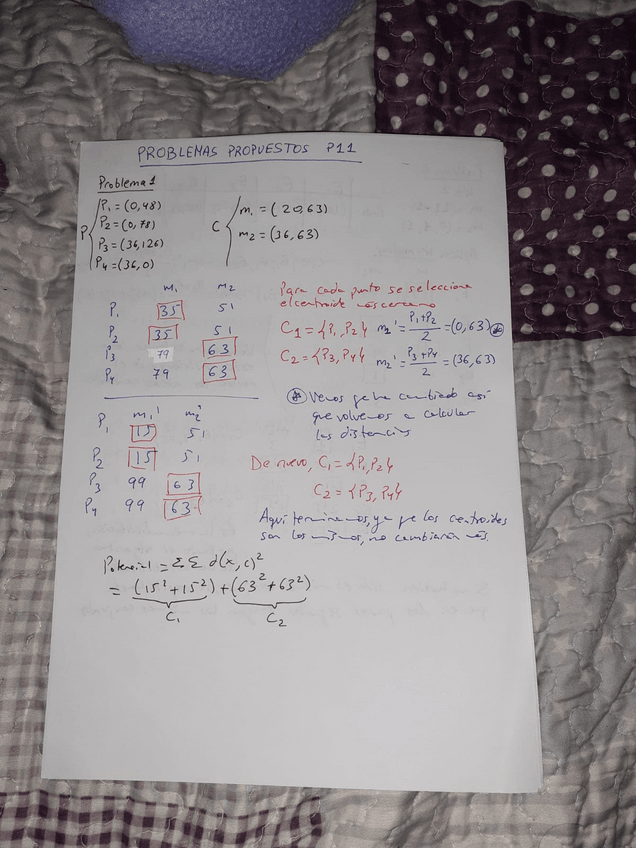 PROBLEMAS PROPUESTOS P11
Problema 1
P { P₁ = (0,48)
P₂ = (0,78)
P₃ = (36,126)
P₄ = (36,0)
C { m₁ = (20,63)
m₂ = (36,63)
m₁ m₂
P₁ 35 51
P₂ 35 51
P₃ 79 63
P₄ 79 63
Para cada punto se selecciona
el centroide más cercano
C₁ = {P₁, P₂} m₁' = P₁+P₂/2 = (0,63) *
C₂ = {P₃, P₄} m₂' = P₃+P₄/2 = (36,63)
* Vemos que ha cambiado así
que volvemos a calcular
las distancias
m₁' m₂'
P₁ 15 51
P₂ 15 51
P₃ 99 63
P₄ 99 63
De nuevo, C₁ = {P₁, P₂}
C₂ = {P₃, P₄}
Aquí terminamos, ya que los centroides
son los mismos, no cambiarán más.
Potencial = Σ Σ d(x, c)²
= (15² + 15²) + (63² + 63²)
C₁ C₂